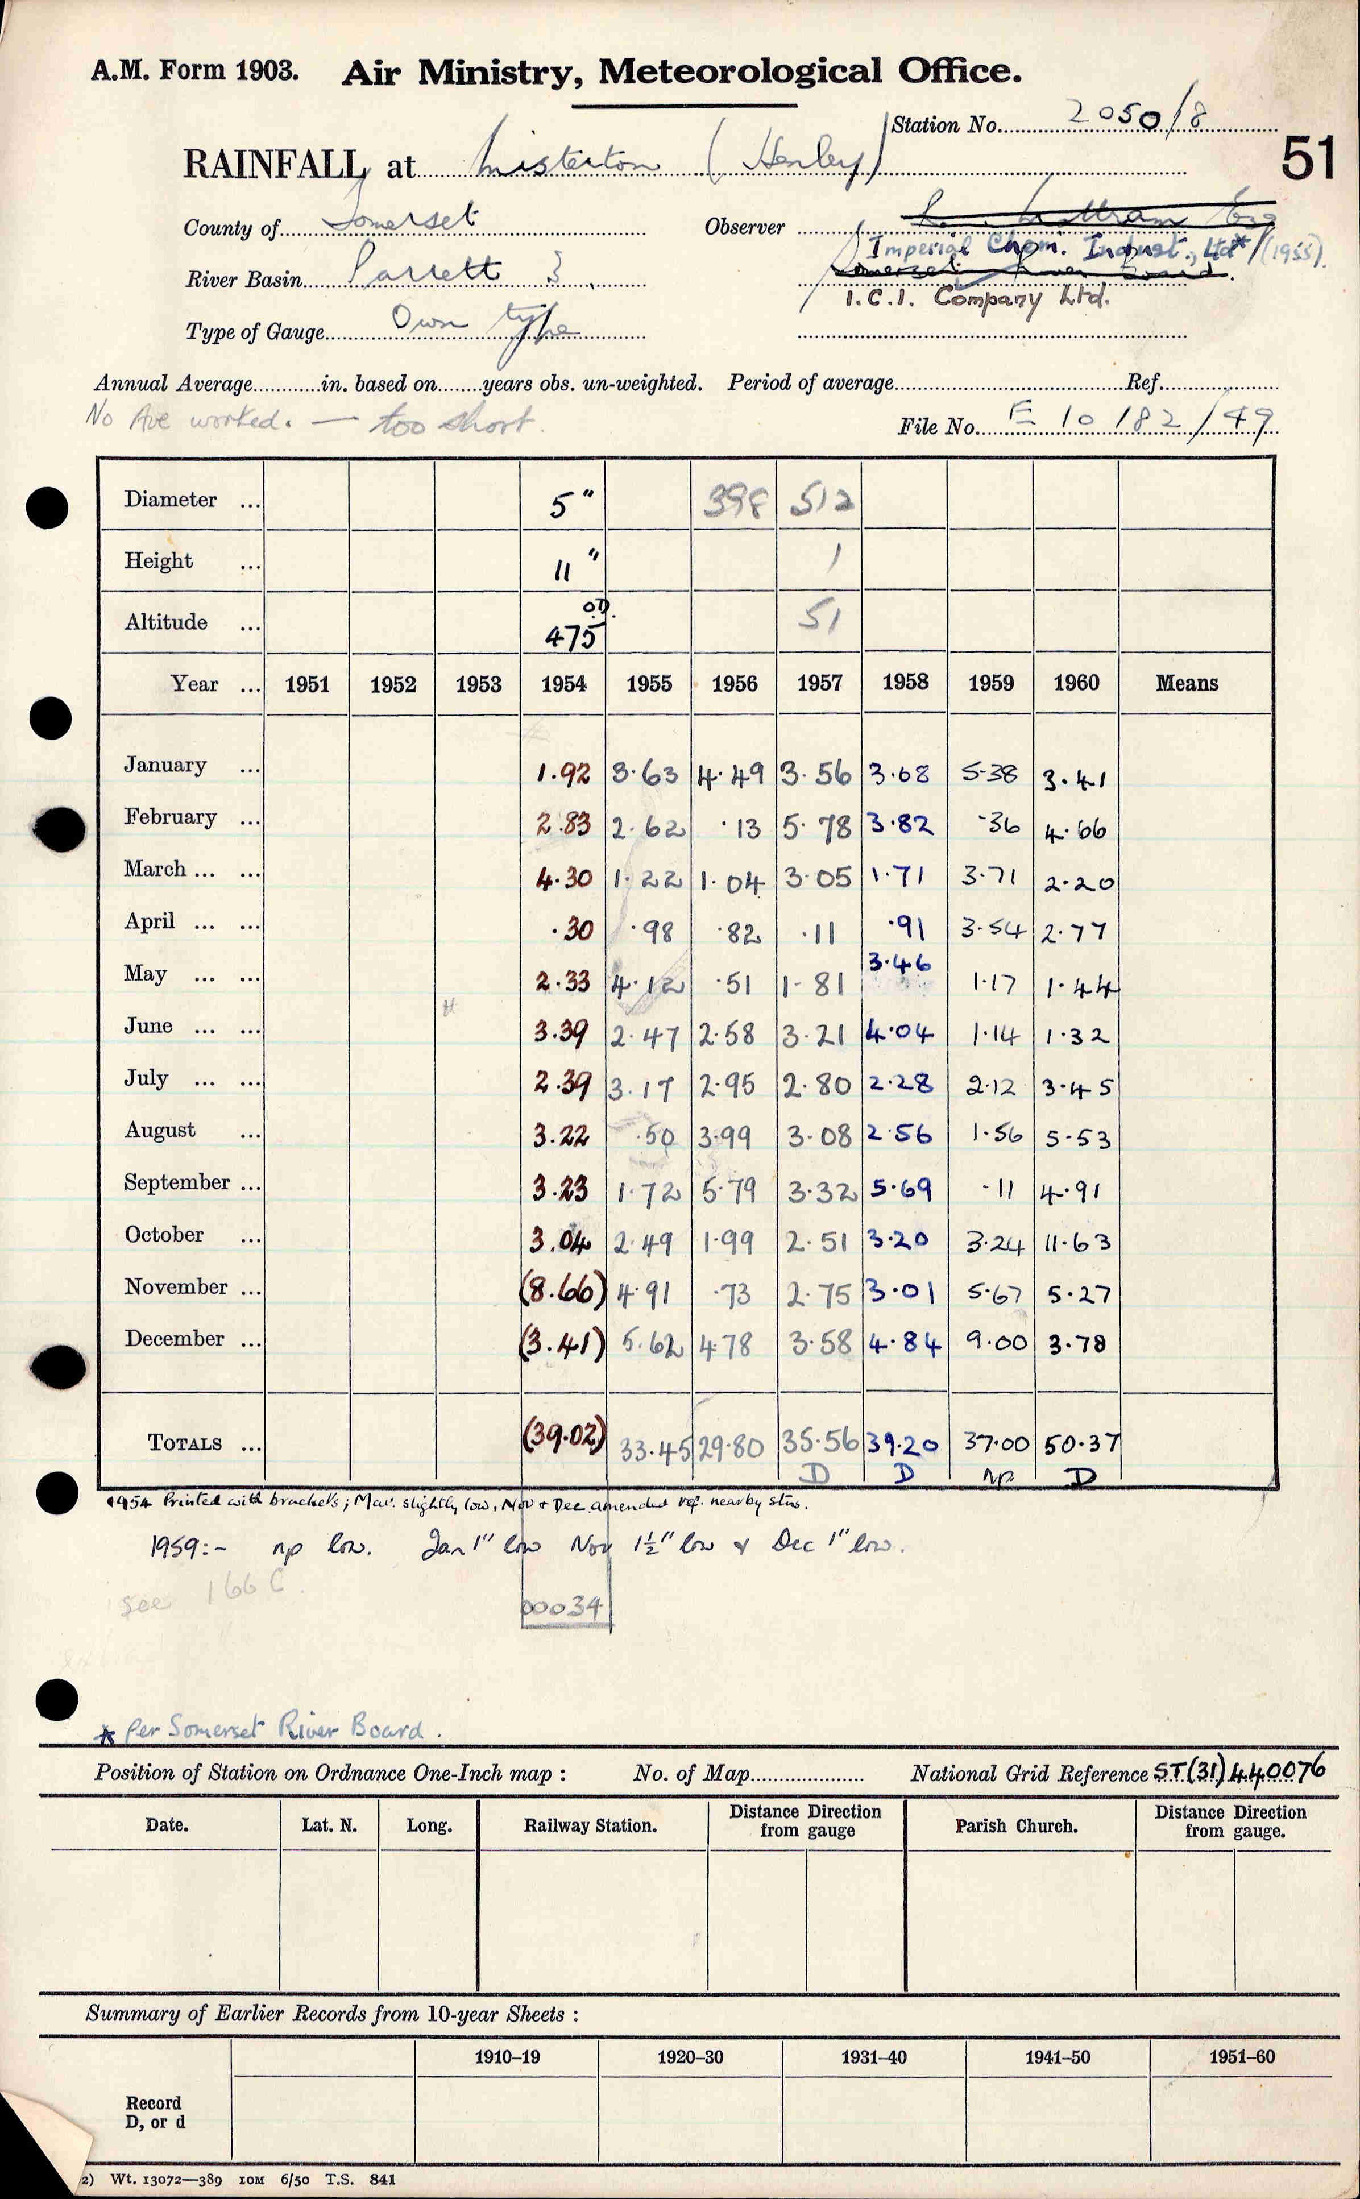 A.M. Form 1903. Air Ministry, Meteorological Office.
Station No. 2050/8
51
RAINFALL at Misterton (Henley)
County of Somerset Observer
Imperial Chem. Indust., Ltd* (1955).
River Basin Parrett 3 Somerset River Board.
I.C.I. Company Ltd.
Type of Gauge Own type
Annual Average in. based on years obs. un-weighted. Period of average Ref.
No Ave worked. — too short.
File No. E 10182/49
Diameter ... 5" 398 512
Height ... 11" 1
Altitude ... 475 O.D. 51
Year ... 1951 1952 1953 1954 1955 1956 1957 1958 1959 1960 Means
January ... 1.92 3.63 4.49 3.56 3.68 5.38 3.41
February ... 2.83 2.62 .13 5.78 3.82 .36 4.66
March ... ... 4.30 1.22 1.04 3.05 1.71 3.71 2.20
April ... ... .30 .98 .82 .11 .91 3.54 2.77
May ... ... 2.33 4.12 .51 1.81 3.46 1.17 1.44
June ... ... 3.39 2.47 2.58 3.21 4.04 1.14 1.32
July ... ... 2.39 3.17 2.95 2.80 2.28 2.12 3.45
August ... 3.22 .50 3.99 3.08 2.56 1.56 5.53
September ... 3.23 1.72 5.79 3.32 5.69 .11 4.91
October ... 3.04 2.49 1.99 2.51 3.20 3.24 11.63
November ... (8.66) 4.91 .73 2.75 3.01 5.67 5.27
December ... (3.41) 5.62 4.78 3.58 4.84 9.00 3.78
TOTALS ... (39.02) 33.45 29.80 35.56 39.20 37.00 50.37
D D np D
1954 Printed with brackets; Mar. slightly low, Nov & Dec amended ref. nearby stns.
1959:- np low. Jan 1" low Nov 1½" low & Dec 1" low.
see 166 C.
00034
* Per Somerset River Board.
Position of Station on Ordnance One-Inch map : No. of Map National Grid Reference ST(31)440076
Date. Lat. N. Long. Railway Station. Distance Direction from gauge Parish Church. Distance Direction from gauge.
Summary of Earlier Records from 10-year Sheets :
1910–19 1920–30 1931–40 1941–50 1951–60
Record
D, or d
2) Wt. 13072—389 10M 6/50 T.S. 841